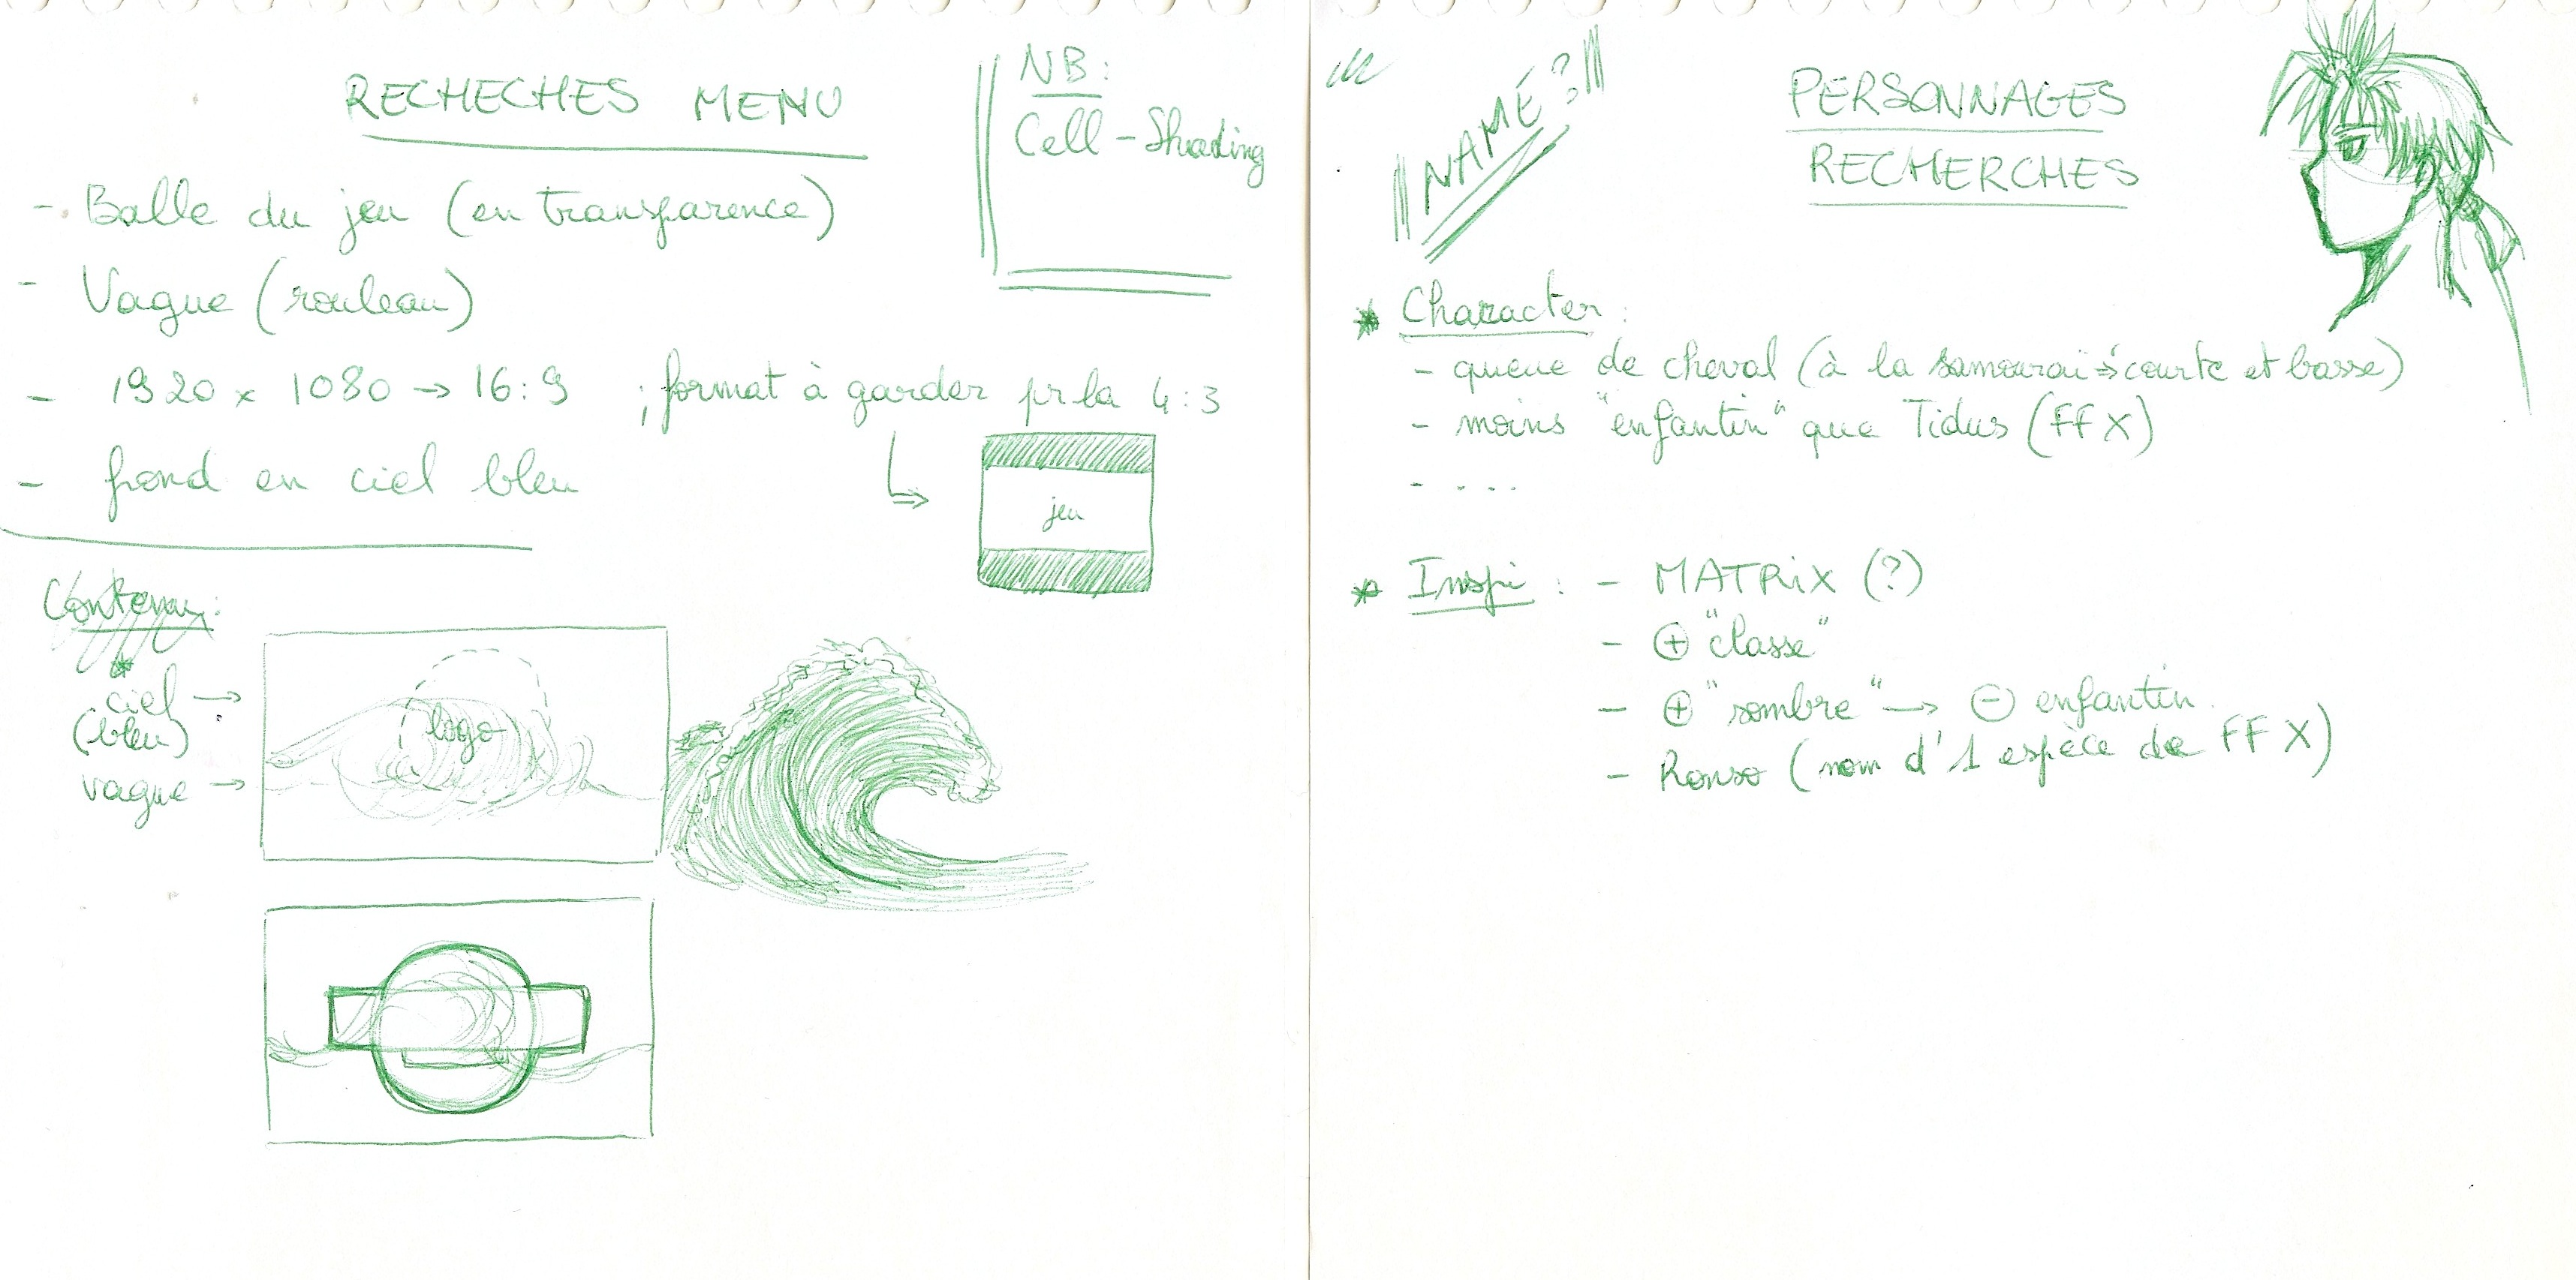 RECHECHES MENU
NB:
Cell-Shading
- Balle du jeu (en transparence)
- Vague (rouleau)
- 1920 x 1080 → 16:9 ; format à garder pr la 4:3
jeu
- fond en ciel bleu
Contenu:
ciel →
(bleu)
vague →
logo
NAME?
PERSONNAGES
RECHERCHES
* Character:
- queue de cheval (à la samouraï → courte et basse)
- moins "enfantin" que Tidus (FF X)
- ....
* Inspi : - MATRiX (?)
- ⊕ "classe"
- ⊕ "sombre" → ⊖ enfantin
- Ronso (nom d'1 espèce de FF X)